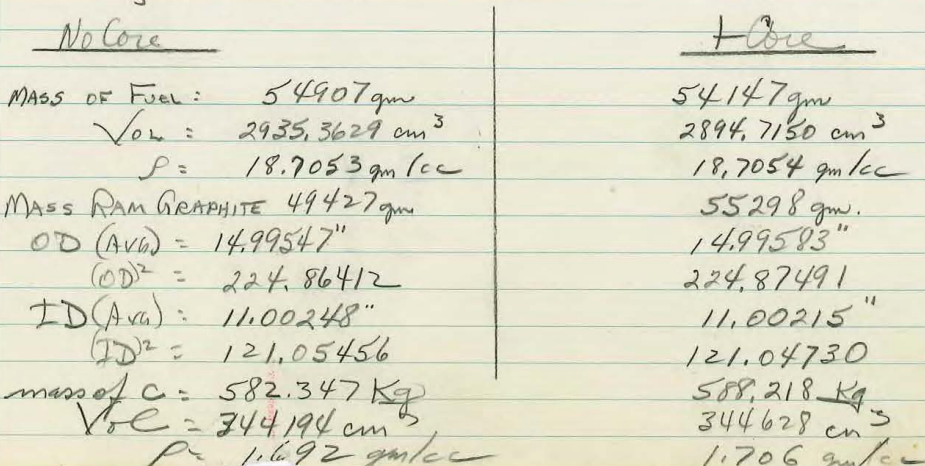 No Core + Core
MASS OF FUEL: 54907 gm 54147 gm
VOL: 2935.3629 cm³ 2894.7150 cm³
ρ = 18.7053 gm/cc 18.7054 gm/cc
MASS RAM GRAPHITE 49427 gm 55298 gm.
OD (AVG) = 14.99547" 14.99583"
(OD)² = 224.86412 224.87491
ID (AVG) : 11.00248" 11.00215"
(ID)² = 121.05456 121.04730
mass of C = 582.347 Kg 588.218 Kg
Vol = 344194 cm³ 344628 cm³
ρ = 1.692 gm/cc 1.706 gm/cc